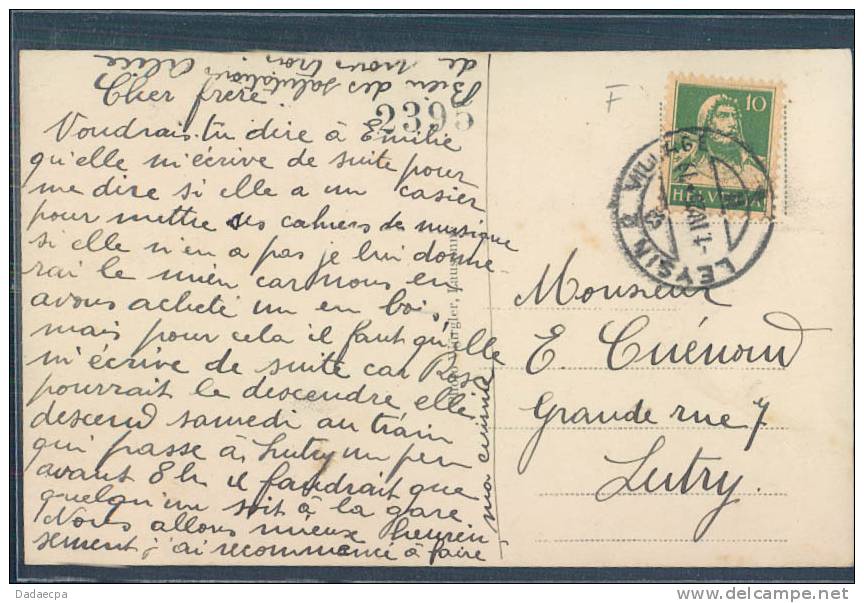 Cher frère
Voudrais-tu dire à Emilie
qu'elle m'écrive de suite pour
me dire si elle a un casier
pour mettre ses cahiers de musique
si elle n'en a pas je lui donne-
rai le mien car nous en
avons acheté un en bois,
mais pour cela il faut qu'elle
m'écrive de suite car Rose
pourrait le descendre elle
descend samedi au train
qui passe à Lutry un peu
avant 8 h il faudrait que
quelqu'un soit à la gare
Nous allons mieux heureu
sement, j'ai recommencé à faire
ma cuisine
Bien des salutations
de nous trois Alice
2395
F
10
HELVETIA
LEYSIN VILLAGE
Monsieur
E. Cuénoud
Grande rue 7
Lutry.
Dadaecpa
www.delcampe.net